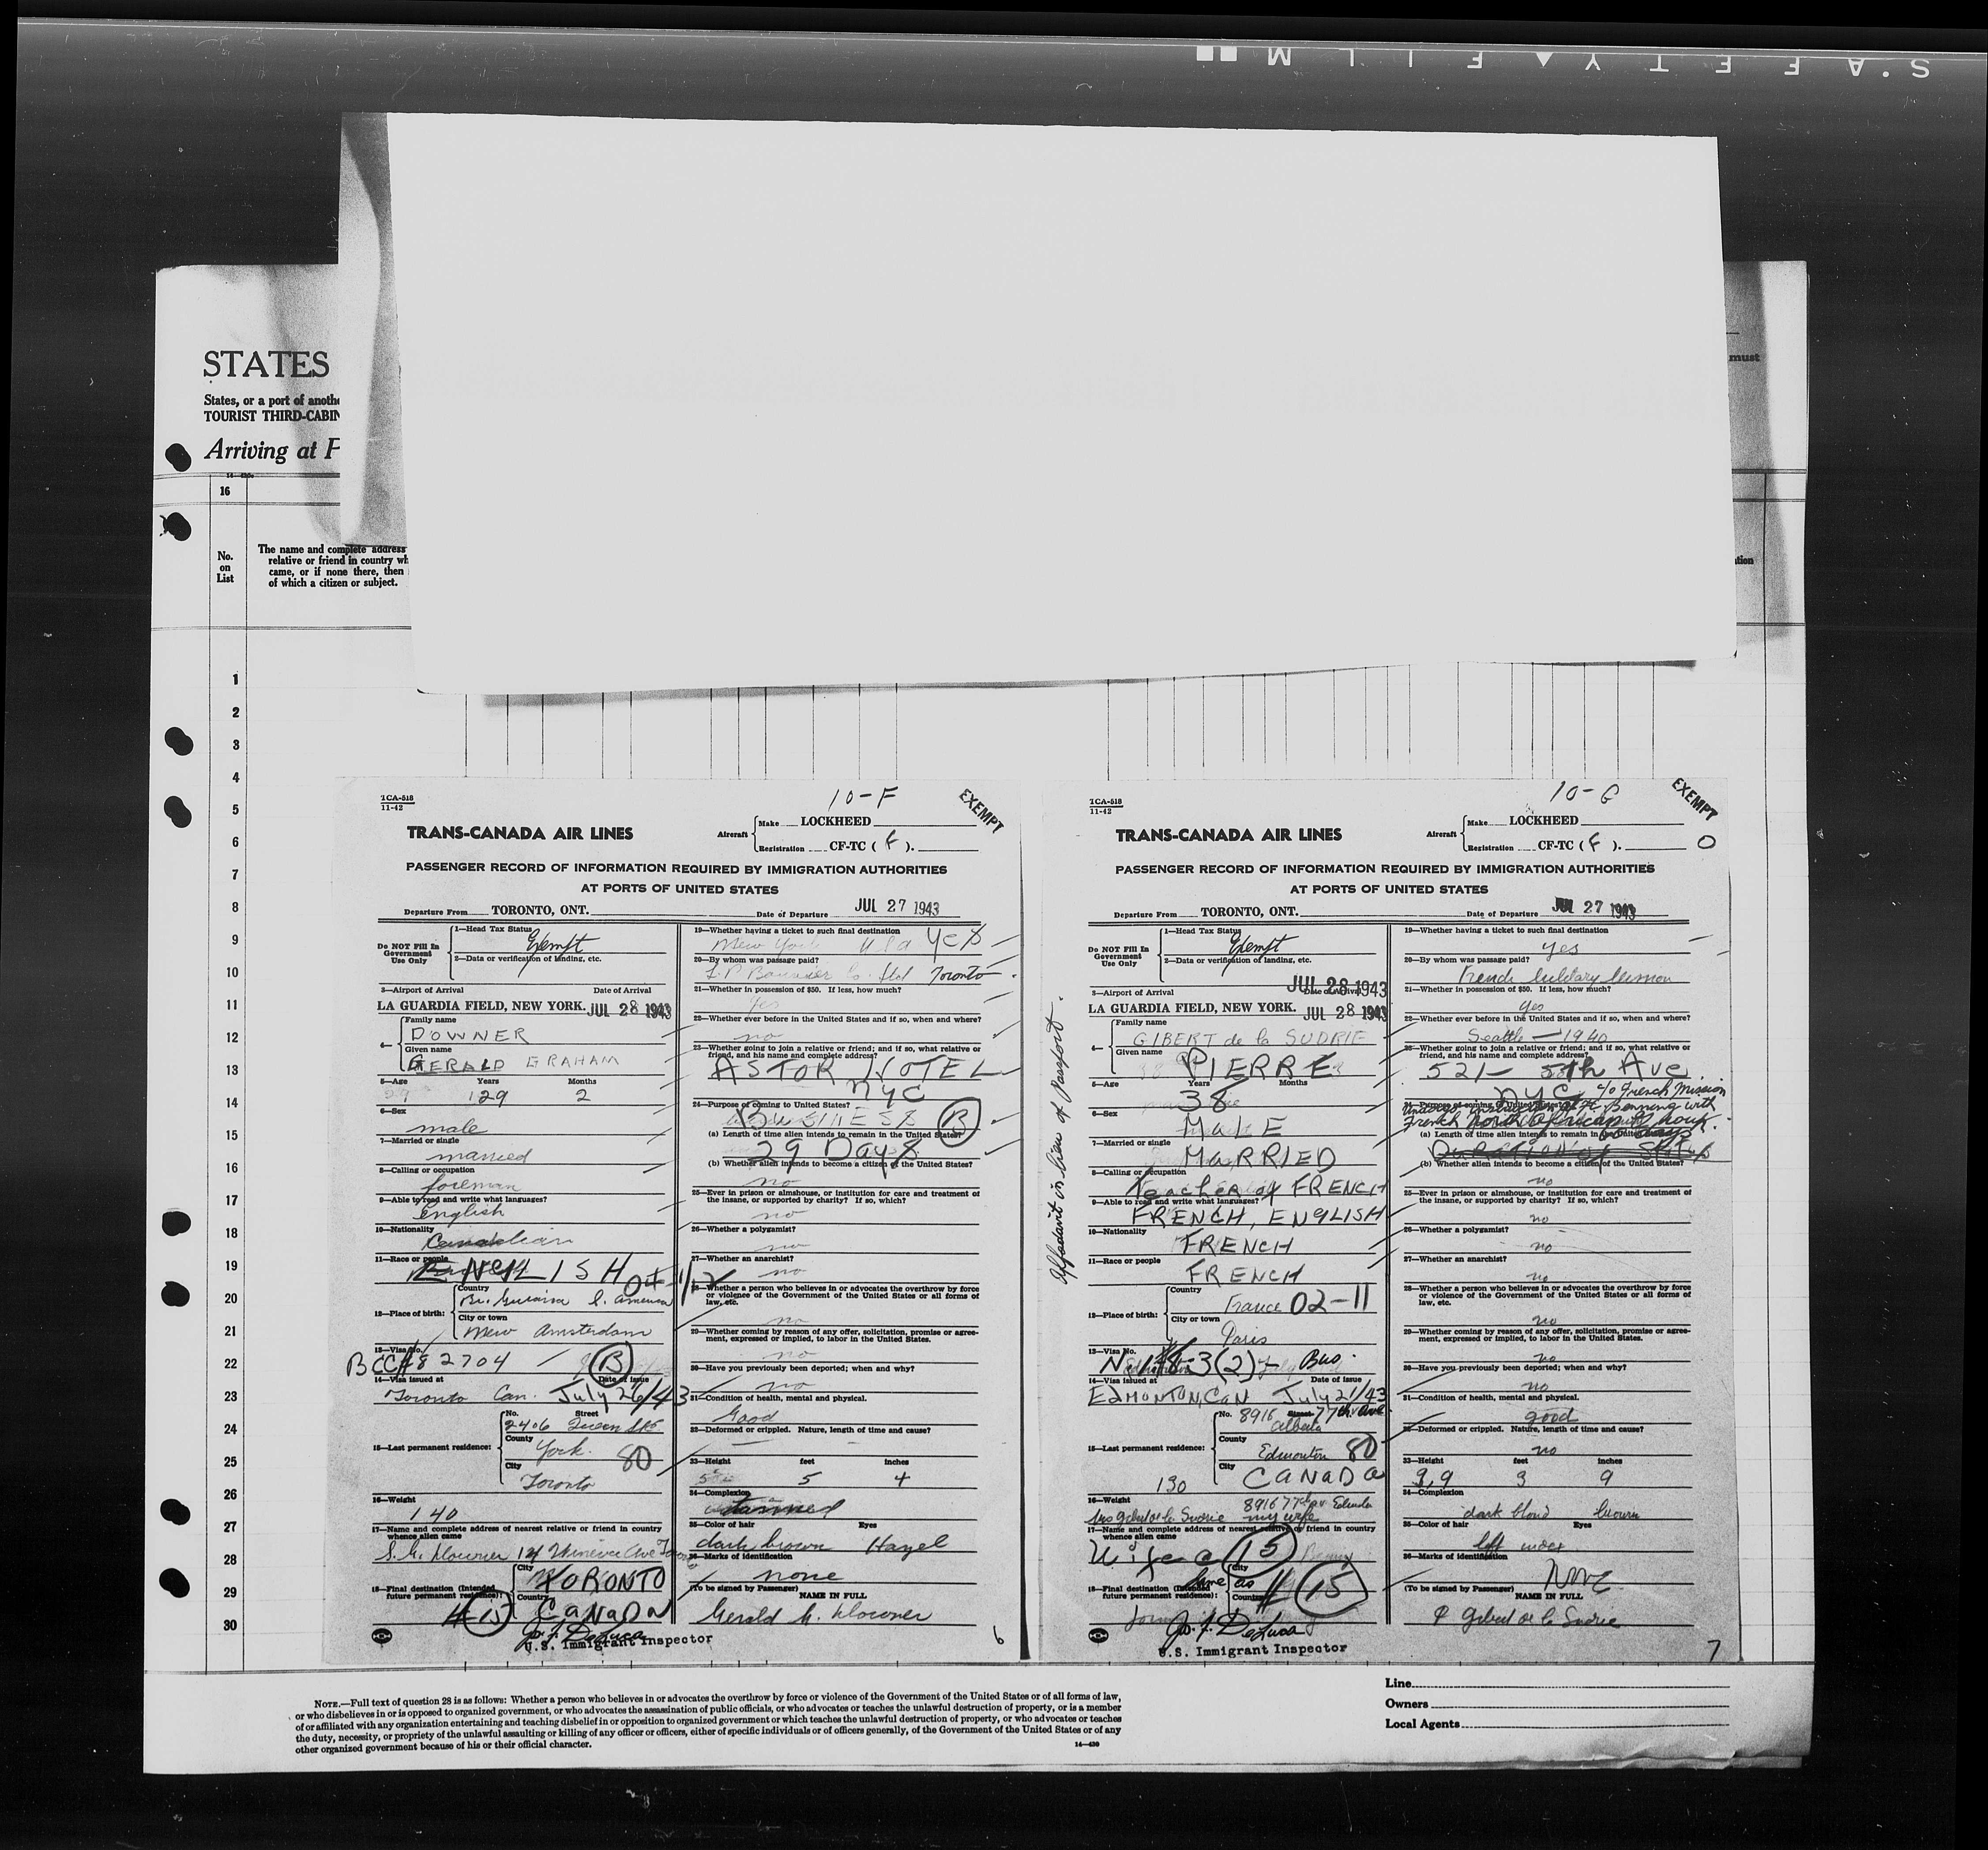 S.AFETY▲FILM■■
STATES
States, or a port of anothe
TOURIST THIRD-CABIN
Arriving at P
must
16
No.
on
List
The name and complete address
relative or friend in country wh
came, or if none there, then
of which a citizen or subject.
tion
1
2
3
4
5
6
7
8
9
10
11
12
13
14
15
16
17
18
19
20
21
22
23
24
25
26
27
28
29
30
TCA-518
11-42
10-F
EXEMPT
TRANS-CANADA AIR LINES
Aircraft
Make LOCKHEED
Registration CF-TC ( F ).
PASSENGER RECORD OF INFORMATION REQUIRED BY IMMIGRATION AUTHORITIES
AT PORTS OF UNITED STATES
Departure From TORONTO, ONT.
Date of Departure JUL 27 1943
Do NOT Fill In
Government
Use Only
1—Head Tax Status
Exempt
2—Data or verification of landing, etc.
3—Airport of Arrival Date of Arrival
LA GUARDIA FIELD, NEW YORK. JUL 28 1943
4—
Family name
DOWNER
Given name
GERALD GRAHAM
5—Age Years Months
29 2
6—Sex
male
7—Married or single
married
8—Calling or occupation
foreman
9—Able to read and write what languages?
english
10—Nationality
Canadian
11—Race or people
ENGLISH
12—Place of birth:
Country
Br. Guiana S. America
City or town
New Amsterdam
13—Visa No.
BCC# 82704 B
14—Visa issued at Date of Issue
Toronto Can. July 26/43
15—Last permanent residence:
No. Street
2406 Queen St E.
County
York. 80
City
Toronto
16—Weight
140
17—Name and complete address of nearest relative or friend in country
whence alien came
18—Final destination (Intended
future permanent residence):
City
TORONTO
Country
CANADA
15
Jos. F. DeLuca
U.S. Immigrant Inspector
19—Whether having a ticket to such final destination
New York Yes
20—By whom was passage paid?
Toronto
21—Whether in possession of $50. If less, how much?
Yes
22—Whether ever before in the United States and if so, when and where?
no
23—Whether going to join a relative or friend; and if so, what relative or
friend, and his name and complete address?
ASTOR HOTEL
NYC
24—Purpose of coming to United States?
BUSINESS B
(a) Length of time alien intends to remain in the United States?
29 Days
(b) Whether alien intends to become a citizen of the United States?
no
25—Ever in prison or almshouse, or institution for care and treatment of
the insane, or supported by charity? If so, which?
no
26—Whether a polygamist?
no
27—Whether an anarchist?
no
28—Whether a person who believes in or advocates the overthrow by force
or violence of the Government of the United States or all forms of
law, etc.
no
29—Whether coming by reason of any offer, solicitation, promise or agree-
ment, expressed or implied, to labor in the United States.
no
30—Have you previously been deported; when and why?
no
31—Condition of health, mental and physical.
Good
32—Deformed or crippled. Nature, length of time and cause?
33—Height feet inches
5 4
34—Complexion
tanned
35—Color of hair Eyes
dark brown Hazel
36—Marks of identification
none
(To be signed by Passenger) NAME IN FULL
Gerald G. Downer
6
TCA-518
11-42
10-G
EXEMPT
O
TRANS-CANADA AIR LINES
Aircraft
Make LOCKHEED
Registration CF-TC ( F ).
PASSENGER RECORD OF INFORMATION REQUIRED BY IMMIGRATION AUTHORITIES
AT PORTS OF UNITED STATES
Departure From TORONTO, ONT.
Date of Departure JUL 27 1943
Affadavit in lieu of Passport.
Do NOT Fill In
Government
Use Only
1—Head Tax Status
Exempt
2—Data or verification of landing, etc.
JUL 28 1943
3—Airport of Arrival Date of Arrival
LA GUARDIA FIELD, NEW YORK. JUL 28 1943
4—
Family name
GIBERT de la SUDRIE
Given name
PIERRE
5—Age Years Months
38
6—Sex
MALE
7—Married or single
MARRIED
8—Calling or occupation
Teacher of FRENCH
9—Able to read and write what languages?
FRENCH, ENGLISH
10—Nationality
FRENCH
11—Race or people
FRENCH
12—Place of birth:
Country
France 02-11
City or town
Paris
13—Visa No.
3(2) - Bus.
14—Visa issued at Date of Issue
EDMONTON, CAN July 21/43
15—Last permanent residence:
No. 8916 Street 77th Ave
Alberta
County
Edmonton 80
City
CANADA
130
16—Weight
my wife
17—Name and complete address of nearest relative or friend in country
whence alien came
15
18—Final destination (Intended
future permanent residence):
City
same as
Country
15
Jos. F. DeLuca
U.S. Immigrant Inspector
19—Whether having a ticket to such final destination
yes
20—By whom was passage paid?
French Military Mission
21—Whether in possession of $50. If less, how much?
yes
22—Whether ever before in the United States and if so, when and where?
Seattle — 1940
23—Whether going to join a relative or friend; and if so, what relative or
friend, and his name and complete address?
521 - 5th Ave
NYC c/o French Mission
24—Purpose of coming to United States?
Benning with
French North African
(a) Length of time alien intends to remain in the United States?
(b) Whether alien intends to become a citizen of the United States?
no
25—Ever in prison or almshouse, or institution for care and treatment of
the insane, or supported by charity? If so, which?
no
26—Whether a polygamist?
no
27—Whether an anarchist?
no
28—Whether a person who believes in or advocates the overthrow by force
or violence of the Government of the United States or all forms of
law, etc.
no
29—Whether coming by reason of any offer, solicitation, promise or agree-
ment, expressed or implied, to labor in the United States.
no
30—Have you previously been deported; when and why?
no
31—Condition of health, mental and physical.
good
32—Deformed or crippled. Nature, length of time and cause?
no
33—Height feet inches
3 9
34—Complexion
dark blond brown
35—Color of hair Eyes
left index
36—Marks of identification
None
(To be signed by Passenger) NAME IN FULL
P Gibert de la Sudrie
7
NOTE.—Full text of question 28 is as follows: Whether a person who believes in or advocates the overthrow by force or violence of the Government of the United States or of all forms of law,
or who disbelieves in or is opposed to organized government, or who advocates the assassination of public officials, or who advocates or teaches the unlawful destruction of property, or is a member
of or affiliated with any organization entertaining and teaching disbelief in or opposition to organized government or which teaches the unlawful destruction of property, or who advocates or teaches
the duty, necessity, or propriety of the unlawful assaulting or killing of any officer or officers, either of specific individuals or of officers generally, of the Government of the United States or of any
other organized government because of his or their official character.
14—430
Line
Owners
Local Agents